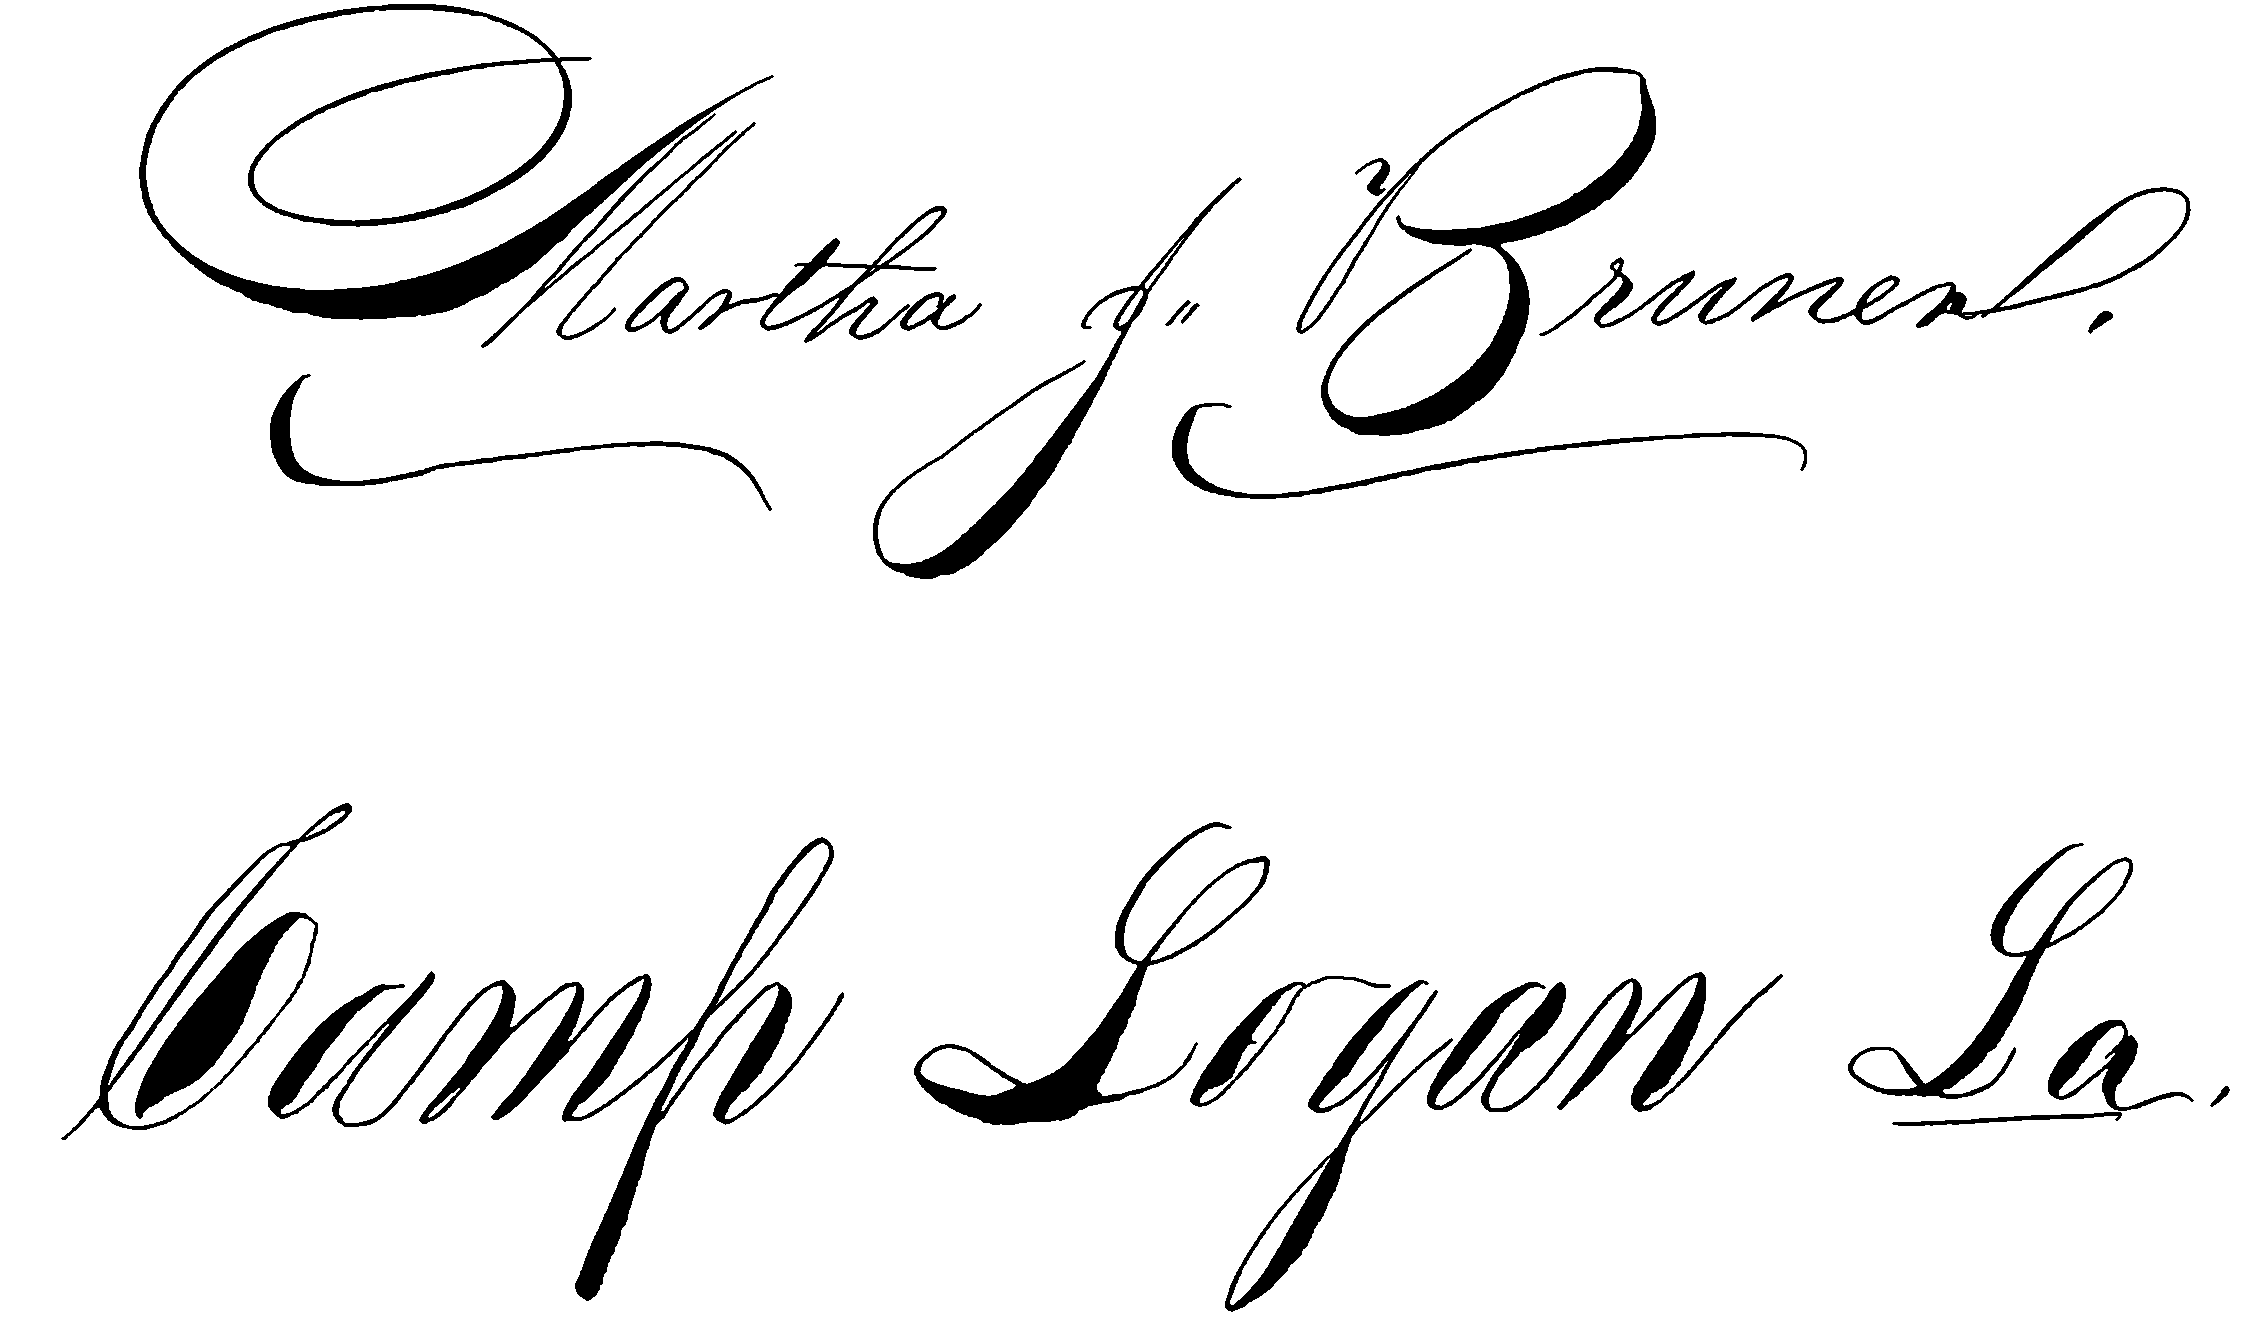 Martha J" Bruner.
Camp Logan La.